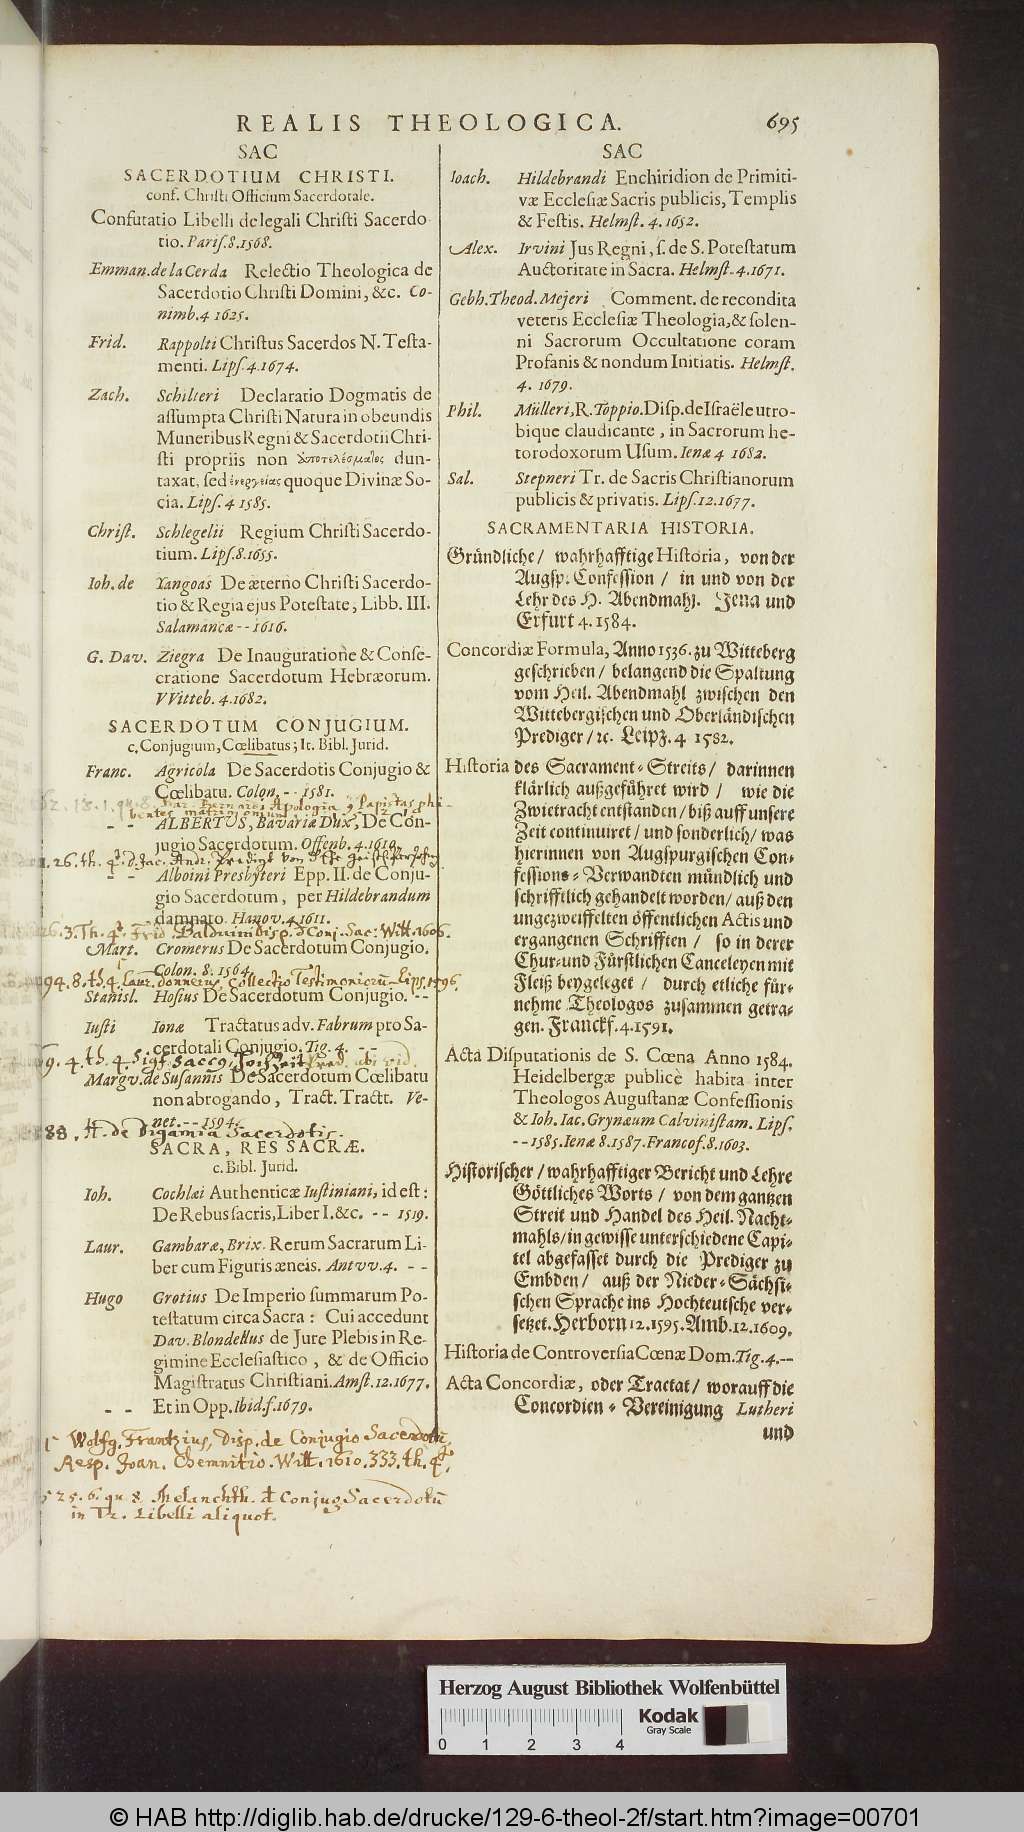 REALIS THEOLOGICA. 695
SAC
SACERDOTIUM CHRISTI.
conf. Christi Officium Sacerdotale.
Confutatio Libelli de legali Christi Sacerdo-
tio. Paris. 8. 1568.
Emman. de la Cerda Relectio Theologica de
Sacerdotio Christi Domini, &c. Co-
nimb. 4 1625.
Frid. Rappolti Christus Sacerdos N. Testa-
menti. Lips. 4. 1674.
Zach. Schilteri Declaratio Dogmatis de
assumpta Christi Natura in obeundis
Muneribus Regni & Sacerdotii Chri-
sti propriis non dun-
taxat, sed quoque Divinæ So-
cia. Lips. 4 1585.
Christ. Schlegelii Regium Christi Sacerdo-
tium. Lips. 8. 1655.
Ioh. de Yangoas De æterno Christi Sacerdo-
tio & Regia ejus Potestate, Libb. III.
Salamancæ -- 1616.
G. Dav. Ziegra De Inauguratione & Conse-
cratione Sacerdotum Hebræorum.
VVitteb. 4. 1682.
SACERDOTUM CONJUGIUM.
c. Conjugium, Cœlibatus; It. Bibl. Jurid.
Franc. Agricola De Sacerdotis Conjugio &
Cœlibatu. Colon. -- 1581.
Bernardi Apologia Papistas
- - ALBERTUS, Bavariæ Dux, De Con-
jugio Sacerdotum. Offenb. 4. 1610.
26. th. 4. D. Jac. Andr. Predigt von
- - Alboini Presbyteri Epp. II. de Conju-
gio Sacerdotum, per Hildebrandum
damnato. Hanov. 4. 1611.
26. 3. Th. 4. Frid Balduini disp. Conj. Sac: Witt. 1606.
Mart. Cromerus De Sacerdotum Conjugio.
Colon. 8. 1564.
94. 8. th. 4. Laur. Donnerus, Collectio Testimoniorum Lips. 1596.
Stanisl. Hosius De Sacerdotum Conjugio. --
Iusti Ionæ Tractatus adv. Fabrum pro Sa-
cerdotali Conjugio. Tig. 4. --
9. 4. th. 4. Sigf. Saccus, Hochzeit Pred.
Margv. de Susannis De Sacerdotum Cœlibatu
non abrogando, Tract. Tractt. Ve-
net. -- 1594.
88. H. de Digamia Sacerdotis.
SACRA, RES SACRÆ.
c. Bibl. Jurid.
Ioh. Cochlæi Authenticæ Iustiniani, id est:
De Rebus sacris, Liber I. &c. -- 1519.
Laur. Gambaræ, Brix. Rerum Sacrarum Li-
ber cum Figuris æneis. Antvv. 4. --
Hugo Grotius De Imperio summarum Po-
testatum circa Sacra: Cui accedunt
Dav. Blondellus de Jure Plebis in Re-
gimine Ecclesiastico, & de Officio
Magistratus Christiani. Amst. 12. 1677.
- - Et in Opp. Ibid. f. 1679.
Wolfg. Frantzius, Disp. de Conjugio Sacerdotũ,
Resp. Joan. Chemnitio. Witt. 1610. 333. th. 4.
525. 6. qu. 8. Melanchth. Conjug Sacerdotũ
in Tr. Libelli aliquot.
SAC
Ioach. Hildebrandi Enchiridion de Primiti-
væ Ecclesiæ Sacris publicis, Templis
& Festis. Helmst. 4. 1652.
Alex. Irvini Jus Regni, s. de S. Potestatum
Auctoritate in Sacra. Helmst. 4. 1671.
Gebh. Theod. Mejeri Comment. de recondita
veteris Ecclesiæ Theologia, & solen-
ni Sacrorum Occultatione coram
Profanis & nondum Initiatis. Helmst.
4. 1679.
Phil. Mülleri, R. Toppio. Disp. de Israële utro-
bique claudicante, in Sacrorum he-
terodoxorum Usum. Ienæ 4 1682.
Sal. Stepneri Tr. de Sacris Christianorum
publicis & privatis. Lips. 12. 1677.
SACRAMENTARIA HISTORIA.
Gründliche / wahrhafftige Historia, von der
Augsp. Confession / in und von der
Lehr des H. Abendmahl. Jena und
Erfurt 4. 1584.
Concordiæ Formula, Anno 1536. zu Witteberg
geschrieben / belangend die Spaltung
vom Heil. Abendmahl zwischen den
Wittebergischen und Oberländischen
Prediger / ꝛc. Leipz. 4 1582.
Historia des Sacrament-Streits / darinnen
klärlich außgeführet wird / wie die
Zwietracht entstanden / biß auff unsere
Zeit continuiret / und sonderlich / was
hierinnen von Augspurgischen Con-
fessions-Verwandten mündlich und
schrifftlich gehandelt worden / auß den
ungezweiffelten öffentlichen Actis und
ergangenen Schrifften / so in derer
Chur- und Fürstlichen Canceleyen mit
Fleiß beygeleget / durch etliche für-
nehme Theologos zusammen getra-
gen. Franckf. 4. 1591.
Acta Disputationis de S. Cœna Anno 1584.
Heidelbergæ publicè habita inter
Theologos Augustanæ Confessionis
& Ioh. Iac. Grynæum Calvinistam. Lips.
-- 1585. Ienæ 8. 1587. Francof. 8. 1603.
Historischer / wahrhafftiger Bericht und Lehre
Göttliches Worts / von dem gantzen
Streit und Handel des Heil. Nacht-
mahls / in gewisse unterschiedene Capi-
tel abgefasset durch die Prediger zu
Embden / auß der Nieder-Sächsi-
schen Sprache ins Hochteutsche ver-
setzet. Herborn 12. 1595. Amb. 12. 1609.
Historia de Controversia Cœnæ Dom. Tig. 4. --
Acta Concordiæ, oder Tractat / worauff die
Concordien-Vereinigung Lutheri
und
Herzog August Bibliothek Wolfenbüttel
Kodak
Gray Scale
0 1 2 3 4
© HAB http://diglib.hab.de/drucke/129-6-theol-2f/start.htm?image=00701